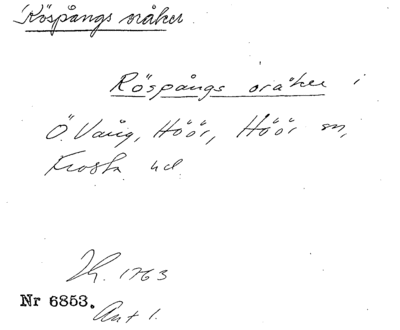 Röspångs oråker
Röspångs oråker i
Ö. Vång, Höör, Höör sn,
Frosta hd
Th. 1763
Nr 6853.
Ant 1.